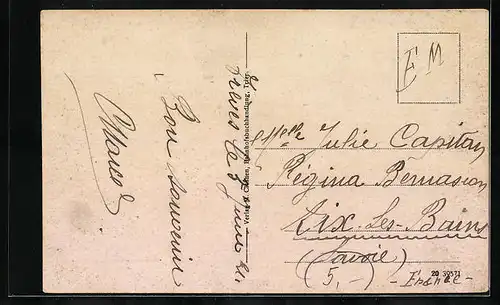 Trèves le 8 Juin 21.
Bon souvenir
Marcel
Verlag H. Cüppers, Bahnhofsbuchhandlung, Trier.
EM
Melle Julie Capitan
Régina Bernascon
Aix-les-Bains
(Savoie)
(5,-)
- France -
20 39571